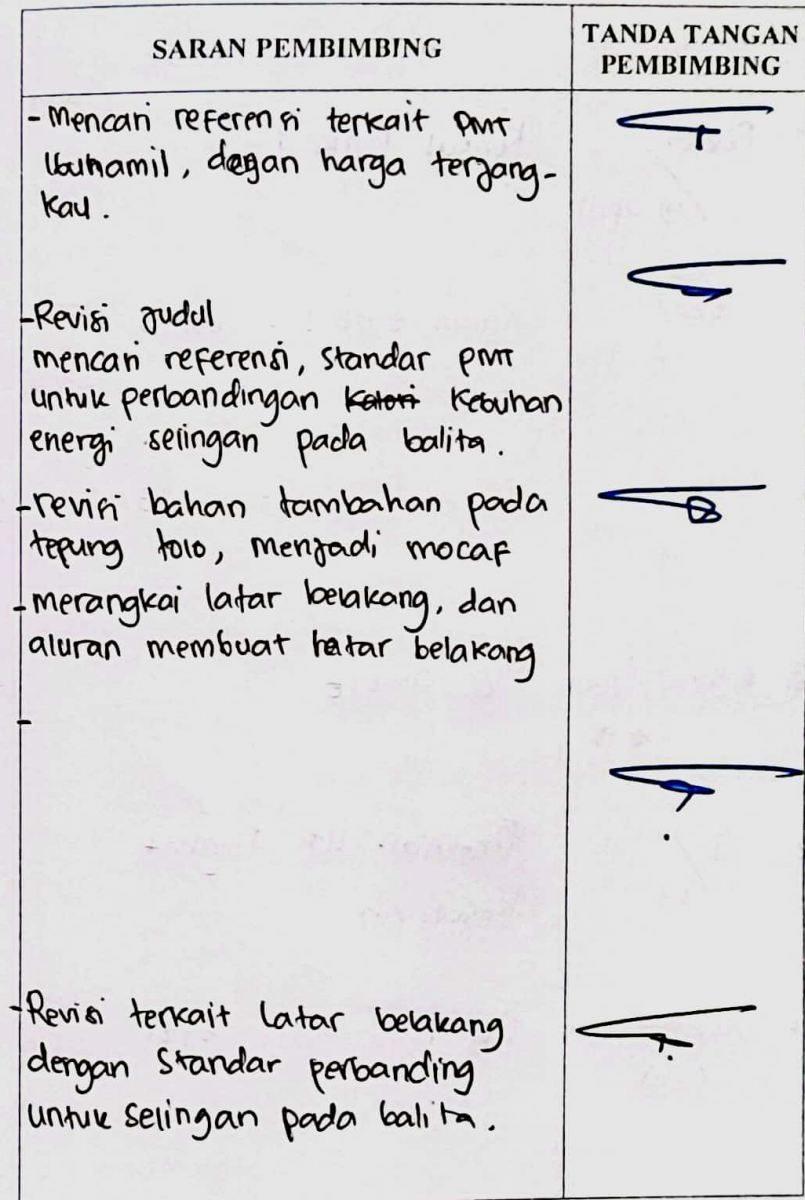 SARAN PEMBIMBING
TANDA TANGAN
PEMBIMBING
- Mencari referensi terkait PMT
Ibuhamil, dengan harga terjang-
kau.
- Revisi judul
mencari referensi, standar PMT
untuk perbandingan Kalori Kebuhan
energi selingan pada balita.
- revisi bahan tambahan pada
tepung tolo, menjadi mocaf
- merangkai latar belakang, dan
aluran membuat latar belakang
-
- Revisi terkait Latar belakang
dengan Standar perbanding
untuk Selingan pada balita.